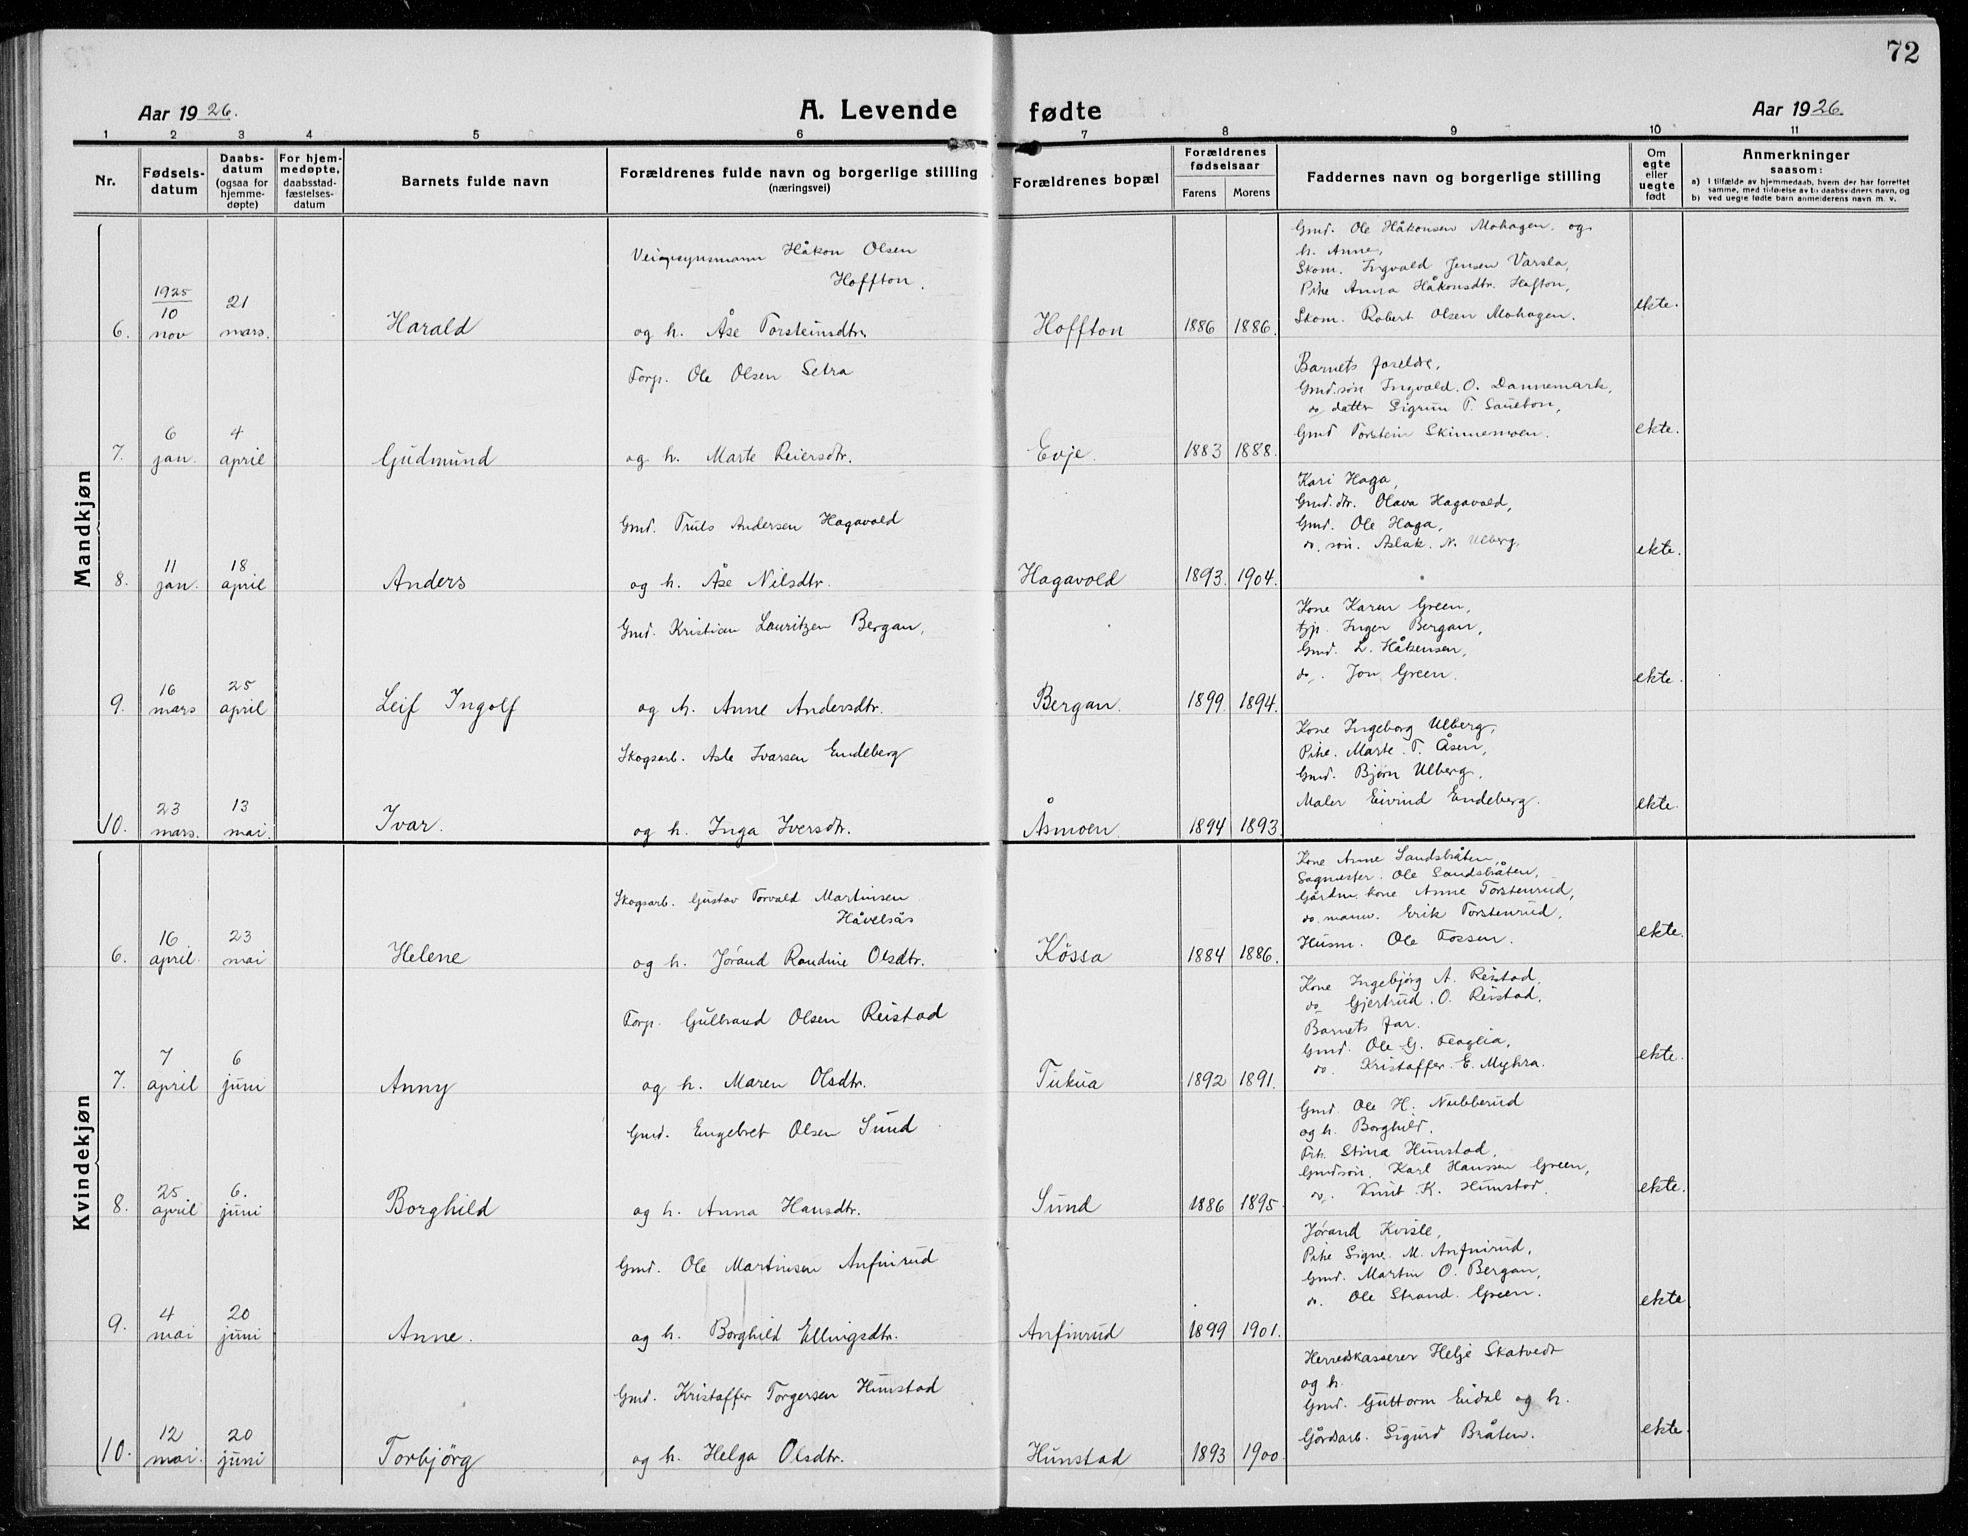 72
Aar 1926.
A. Levende fødte
Aar 1926.
1 2 3 4 5 6 7 8 9 10 11
Nr.
Fødsels-
datum
Daabs-
datum
(ogsaa for
hjemme-
døpte)
For hjem-
medøpte,
daabsstad-
fæstelses-
datum
Barnets fulde navn
Forældrenes fulde navn og borgerlige stilling
(næringsvei)
Forældrenes bopæl
Forældrenes
fødselsaar
Farens Morens
Faddernes navn og borgerlige stilling
Om
egte
eller
uegte
født
Anmerkninger
saasom:
a) I tilfælde av hjemmedaab, hvem der har forrettet
samme, med tilføielse av to daabsvidners navn, og
b) ved uegte fødte barn anmelderens navn m. v.
Mandkjøn
6.
1925
10
nov
21
mars.
Harald
Veiopsynsmann Håkon Olsen
Hoffton.
og h. Åse Torsteinsdtr.
Hoffton
1886 1886.
Gmd. Ole Håkonsen Mohagen. og
h. Anne,
Skom. Ingvald Jensen Varsla,
Pike Anna Håkonsdtr. Hofton,
Skom. Robert Olsen Mohagen.
ekte.
7.
6
jan.
4
april
Gudmund
Torp. Ole Olsen Setra
og h. Marte Reiersdtr.
Evje.
1883 1888.
Barnets foreldre,
Gmd.søn Ingvald. O. Dannemark,
do datter Sigrun T. Sauebon,
Gmd Torstein Skinnemoen.
ekte.
8.
11
jan.
18
april
Anders
Gmd. Truls Andersen Hagavold
og h. Åse Nilsdtr.
Hagavold
1893. 1904.
Kari Haga,
Gmd. dtr. Olava Hagavold,
Gmd. Ole Haga,
do. søn. Aslak. N. Ulberg.
ekte.
9.
16
mars
25
april
Leif Ingolf
Gmd. Kristian Lauritzen Bergan,
og h. Anne Andersdtr.
Bergan.
1899 1894.
Kone Karen Green,
tjp. Inger Bergan,
Gmd. L. Håkensen,
do. Jon Green.
ekte.
10.
23
mars.
13
mai.
Ivar.
Skogsarb. Asle Ivarsen Endeberg
og h. Inga Iversdtr.
Åsmoen.
1894 1893.
Kone Ingeborg Ulberg,
Pike. Marte. T. Åsen,
Gmd. Bjørn Ulberg,
Maler Eivind Endeberg.
ekte.
Kvindekjøn
6.
16
april.
23
mai
Helene
Skogsarb. Gustav Torvald Martinsen
Håvelsås
og h. Jørand Randine Olsdtr.
Køssa
1884 1886.
Kone Anne Sandsbråten,
Sagmester. Ole Sandsbråten,
Gårdm. kone Anne Torstenrud,
do. mann. Erik Torstenrud,
Husm. Ole Fossen.
ekte.
7.
7
april
6
juni
Anny
Torp. Gulbrand Olsen Reistad
og h. Maren Olsdtr.
Tukua
1892 1891.
Kone Ingebjørg A. Reistad.
do Gjertrud. O. Reistad.
Barnets far.
Gmd. Ole G. Flaglia,
do. Kristaffer. E. Myhra.
ekte.
8.
25
april
6.
juni
Borghild
Gmd. Engebret Olsen Sund
og h. Anna Hansdtr.
Sund
1886 1895.
Gmd. Ole H. Nubberud
og h. Borghild.
Pik. Stina Hunstad,
Gmdsøn. Karl Hanssen Green,
do. Knut K. Hunstad.
ekte.
9.
4
mai
20
juni
Anne.
Gmd. Ole Martinsen Anfinrud
og h. Borghild Ellingsdtr.
Anfinrud
1899 1901.
Jørand Kvisle,
Pike Signe. M. Anfinrud,
Gmd. Martin O. Bergan,
do. Ole Strand. Green.
ekte
10.
12
mai.
20
juni
Torbjørg
Gmd. Kristaffer Torgersen Hunstad
og h. Helga Olsdtr.
Hunstad
1893 1900.
Herredskasserer Helge Skatvedt
og h.
Gmd. Guttorm Eidal og h.
Gårdsarb. Sigurd Bråten.
ekte.